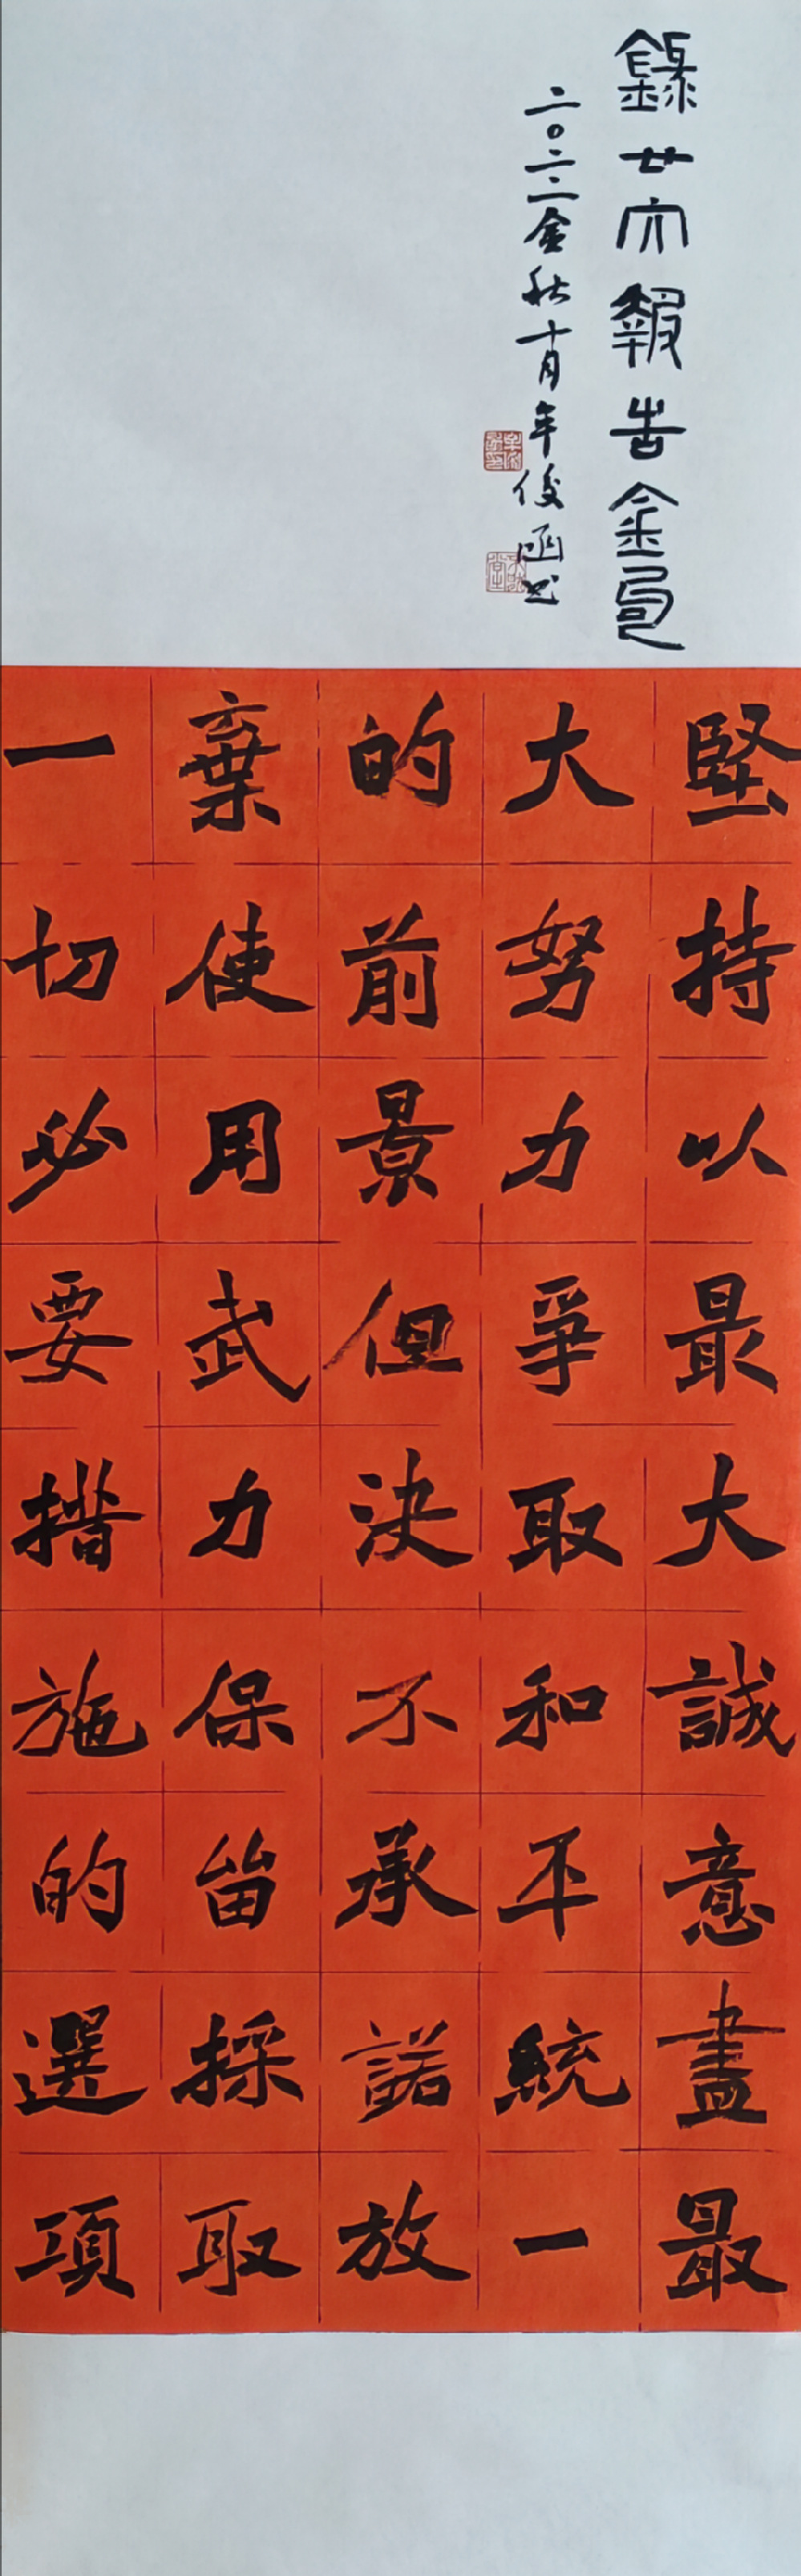 錄廿大報告金句
二〇二二金秋十月牟俊函书
堅持以最大誠意盡最
大努力爭取和平統一
的前景但決不承諾放
棄使用武力保留採取
一切必要措施的選項